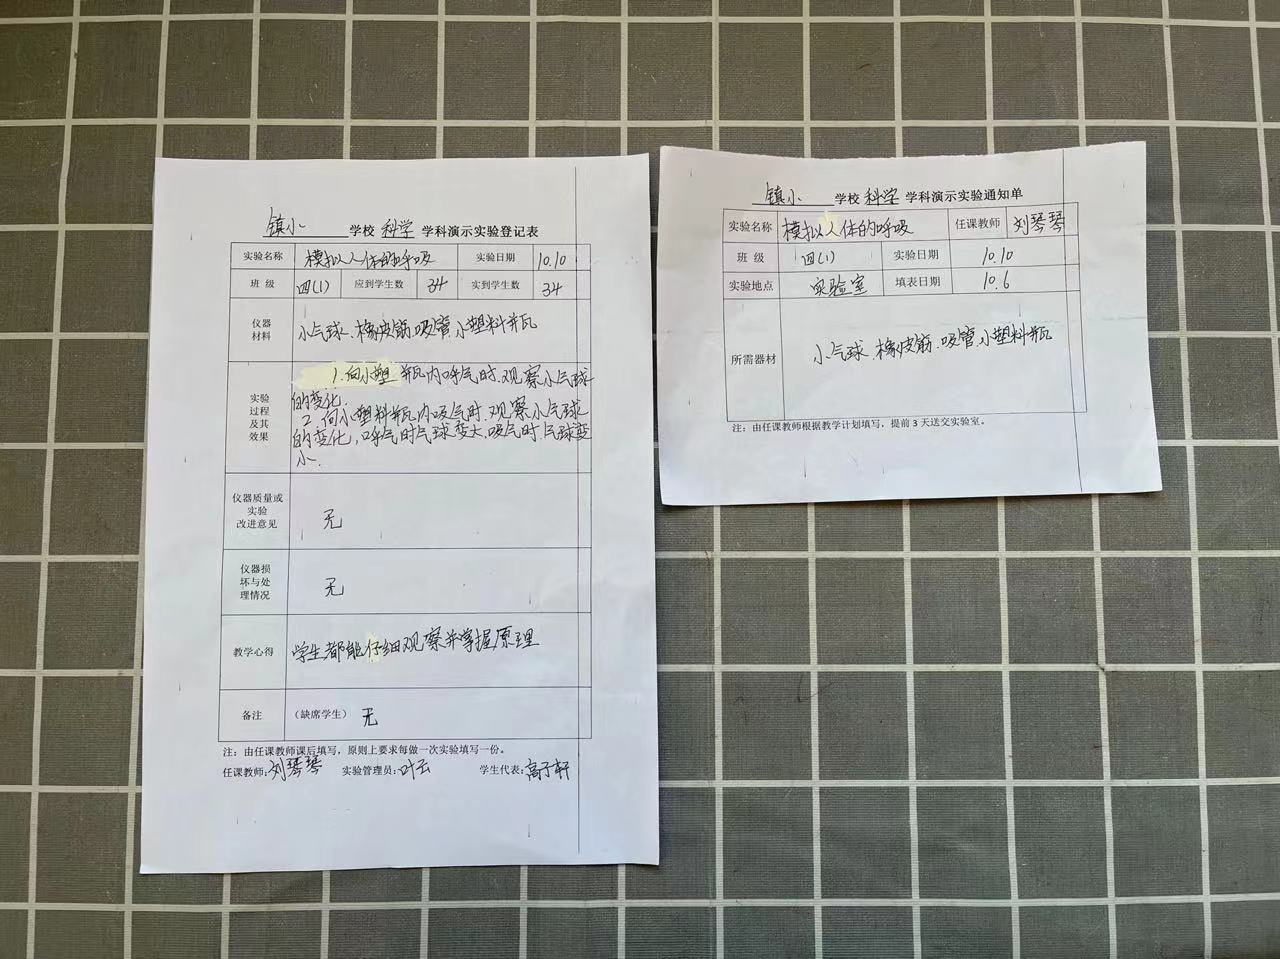 镇小 学校 科学 学科演示实验登记表
实验名称 模拟人体的呼吸 实验日期 10.10
班 级 四(1) 应到学生数 34 实到学生数 34
仪器
材料
小气球、橡皮筋、吸管、小塑料瓶
实验
过程
及其
效果
1.向小塑 瓶内呼气时,观察小气球
的变化.
2.向小塑料瓶内吸气时,观察小气球
的变化,呼气时气球变大,吸气时,气球变
小.
仪器质量或
实验
改进意见
无
仪器损
坏与处
理情况
无
教学心得 学生都能仔细观察并掌握原理
备注 (缺席学生) 无
注:由任课教师课后填写,原则上要求每做一次实验填写一份。
任课教师:刘琴琴 实验管理员:叶云 学生代表:高子轩
镇小 学校 科学 学科演示实验通知单
实验名称 模拟人体的呼吸 任课教师 刘琴琴
班 级 四(1) 实验日期 10.10
实验地点 实验室 填表日期 10.6
所需器材 小气球、橡皮筋、吸管、小塑料瓶
注:由任课教师根据教学计划填写,提前 3 天送交实验室。